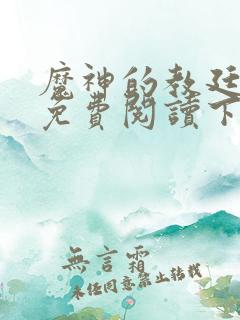 魔神的教廷
免費閱讀下
無言霜
未經同意禁止轉載